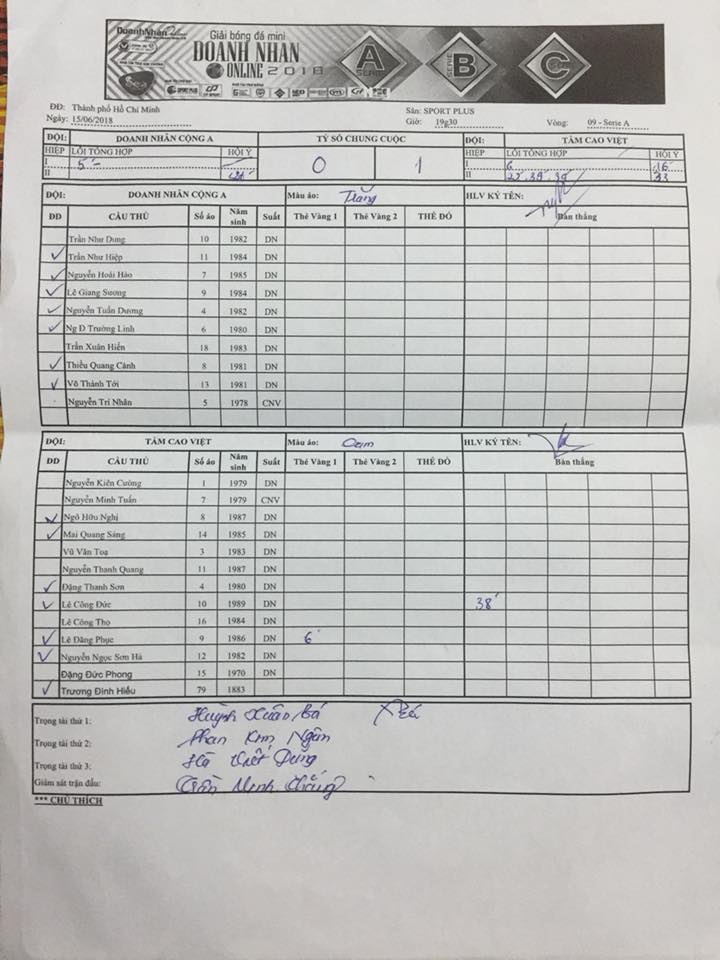 DoanhNhan
Giải bóng đá mini
DOANH NHAN
ONLINE 2018
A SERIE
SERIE B
SERIE C
SPORT PLUS
ĐĐ: Thành phố Hồ Chí Minh Sân: SPORT PLUS
Ngày: 15/06/2018 Giờ: 19g30 Vòng: 09 - Serie A
ĐỘI: DOANH NHÂN CỘNG A TỶ SỐ CHUNG CUỘC ĐỘI: TÂM CAO VIỆT
HIỆP LỖI TỔNG HỢP HỘI Ý 0 1 HIỆP LỖI TỔNG HỢP HỘI Ý
I 5' I 6 16
II II 22' 38' 39'
ĐỘI: DOANH NHÂN CỘNG A Màu áo: Trắng HLV KÝ TÊN:
ĐD CẦU THỦ Số áo Năm sinh Suất Thẻ Vàng 1 Thẻ Vàng 2 THẺ ĐỎ Bàn thắng
Trần Như Dung 10 1982 DN
✓ Trần Như Hiệp 11 1984 DN
✓ Nguyễn Hoài Hảo 7 1985 DN
✓ Lê Giang Sương 9 1984 DN
✓ Nguyễn Tuấn Dương 4 1982 DN
✓ Ng Đ Trường Linh 6 1980 DN
Trần Xuân Hiển 18 1983 DN
✓ Thiều Quang Cảnh 8 1981 DN
✓ Võ Thành Tới 13 1981 DN
Nguyễn Trí Nhân 5 1978 CNV
ĐỘI: TÂM CAO VIỆT Màu áo: Cam HLV KÝ TÊN:
ĐD CẦU THỦ Số áo Năm sinh Suất Thẻ Vàng 1 Thẻ Vàng 2 THẺ ĐỎ Bàn thắng
Nguyễn Kiên Cường 1 1979 DN
Nguyễn Minh Tuấn 7 1979 CNV
✓ Ngô Hữu Nghị 8 1987 DN
✓ Mai Quang Sáng 14 1985 DN
Vũ Văn Toạ 3 1983 DN
Nguyễn Thanh Quang 11 1987 DN
✓ Đặng Thanh Sơn 4 1980 DN
✓ Lê Công Đức 10 1989 DN 38'
Lê Công Thọ 16 1984 DN
✓ Lê Đăng Phục 9 1986 DN 6'
✓ Nguyễn Ngọc Sơn Hà 12 1982 DN
Đặng Đức Phong 15 1970 DN
✓ Trương Đình Hiếu 79 1883
Trọng tài thứ 1: Huỳnh Xuân Bá
Trọng tài thứ 2: Phan Kim Ngân
Trọng tài thứ 3: Hà Dũng
Giám sát trận đấu: Trần Minh
*** CHÚ THÍCH